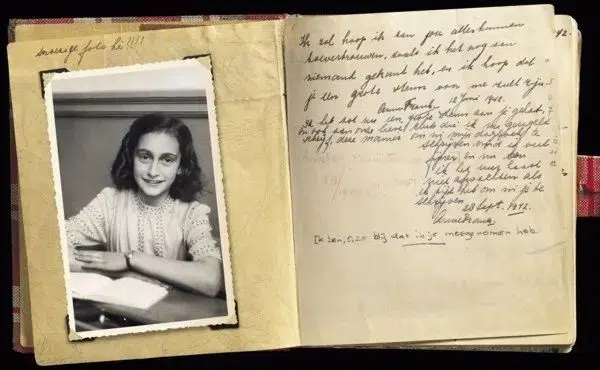 Snoezige foto hè!!!!
Ik zal hoop ik aan jou alles kunnen
toevertrouwen, zoals ik het nog aan
niemand gekund heb, en ik hoop dat
je een grote steun voor me zult zijn.
Anne Frank. 12 Juni 1942.
Ik heb tot nu een grote steun aan je gehad,
en ook aan onze lieve club die ik nu geregeld
schrijf, deze manier om in mijn dagboek te
schrijven vind ik veel
fijner en nu kan
ik het uur haast
niet afwachten als
ik tijd heb om in je te
schrijven.
28 Sept. 1942.
Anne Frank.
Ik ben, O, zo blij dat ik je meegenomen heb.
42.